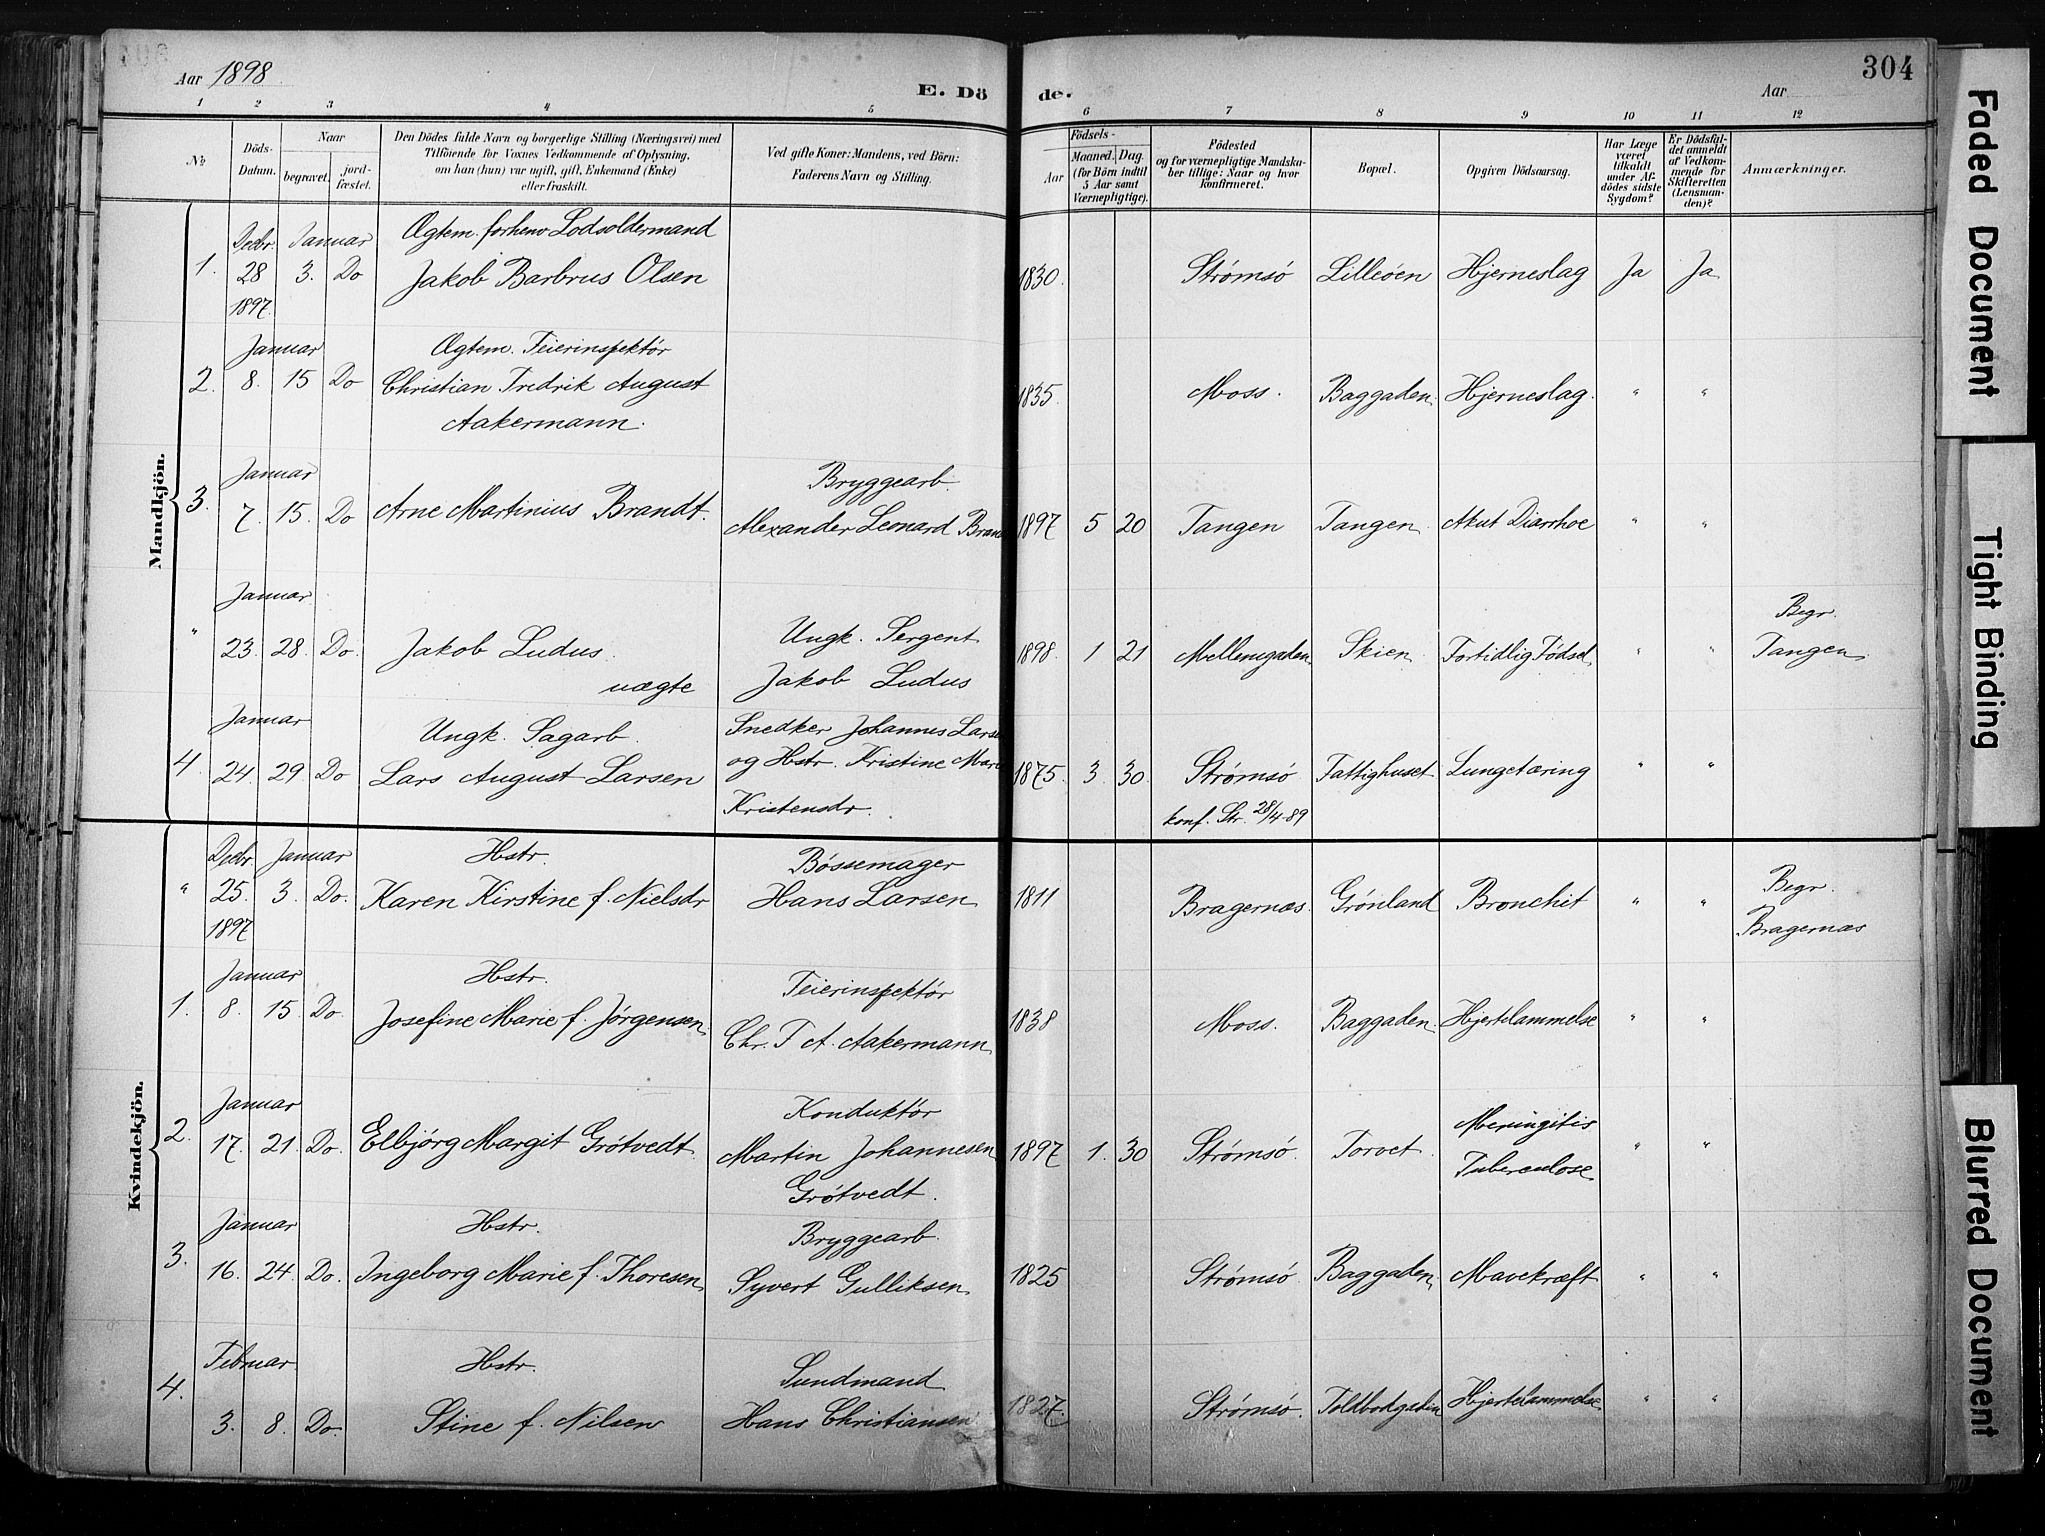 304
Aar 1898
E. Dö de.
Aar
1 2 3 4 5 6 7 8 9 10 11 12
No
Döds-Datum.
Naar
begravet.
jord-fæstet.
Den Dödes fulde Navn og borgerlige Stilling (Næringsvei) med
Tilföiende for Voxnes Vedkommende af Oplysning,
om han (hun) var ugift, gift, Enkemand (Enke)
eller fraskilt.
Ved gifte Koner: Mandens, ved Börn:
Faderens Navn og Stilling.
Födsels-
Aar
Maaned. Dag.
(for Börn indtil
5 Aar samt
Værnepligtige).
Födested
og for værnepligtige Mandska-
ber tillige: Naar og hvor
konfirmeret.
Bopæl.
Opgiven Dödsaarsag.
Har Læge
været
tilkaldt
under Af-
dödes sidste
Sygdom?
Er Dödsfal-
det anmeldt
af Vedkom-
mende for
Skifteretten
(Lensman-
den)?
Anmærkninger.
Mandkjön.
Decbr. Januar Ægtem. forhenv Lodsoldermand
1. 28 3. Do Jakob Barbrus Olsen 1830. Strømsö Lilleöen Hjerneslag Ja Ja
1897.
Januar Ægtem. Feierinspektör
2. 8. 15 Do Christian Fredrik August 1835. Moss. Baggaden. Hjerneslag. " "
Aakermann.
Januar Bryggearb.
3. 7. 15. Do Arne Martinius Brandt. Alexander Leonard Brand 1897 5 20 Tangen Tangen. Akut Diarrhoe " "
Januar Begr.
" 23. 28. Do. Jakob Ludus. Ungk. Sergent 1898. 1 21 Mellemgaden Skien. Fortidlig Födsel. " " Tangen.
uægte Jakob Ludus
Januar Ungk. Sagarb. Snedker Johannes Larse
4. 24. 29. Do Lars August Larsen og Hstr. Kristine Marie 1875. 3. 30. Strømsö Fattighuset Lungetæring " "
Kristensdr. konf. Str. 28/4-89
Kvindekjön.
Decbr. Januar Hstr. Bössemager Begr.
" 25. 3. Do. Karen Kirstine f. Nielsdr Hans Larsen 1811 Bragernæs. Grönland Bronchit " " Bragernæs
1897
Januar Hstr. Feierinspektör
1. 8. 15. Do. Josefine Marie f. Jörgensen. Chr. F A. Aakermann. 1838 Moss. Baggaden. Hjertelammelse " "
Januar Konduktör Meningitis
2. 17. 21. Do. Elbjörg Margit Grötvedt. Martin Johannesen 1897 1. 30 Strømsö. Torvet. Tuberculose " "
Grötvedt.
Januar Hstr. Bryggearb.
3. 16. 24. Do. Ingeborg Marie f. Thoresen Syvert Gulliksen. 1825 Strømsö Baggaden. Mavekræft " "
Februar Hstr. Sundmand
4. 3. 8. Do. Stine f. Nilsen Hans Christiansen 1827. Strømsö. Toldbodgaden Hjertelammelse " "
Faded Document
Tight Binding
Blurred Document